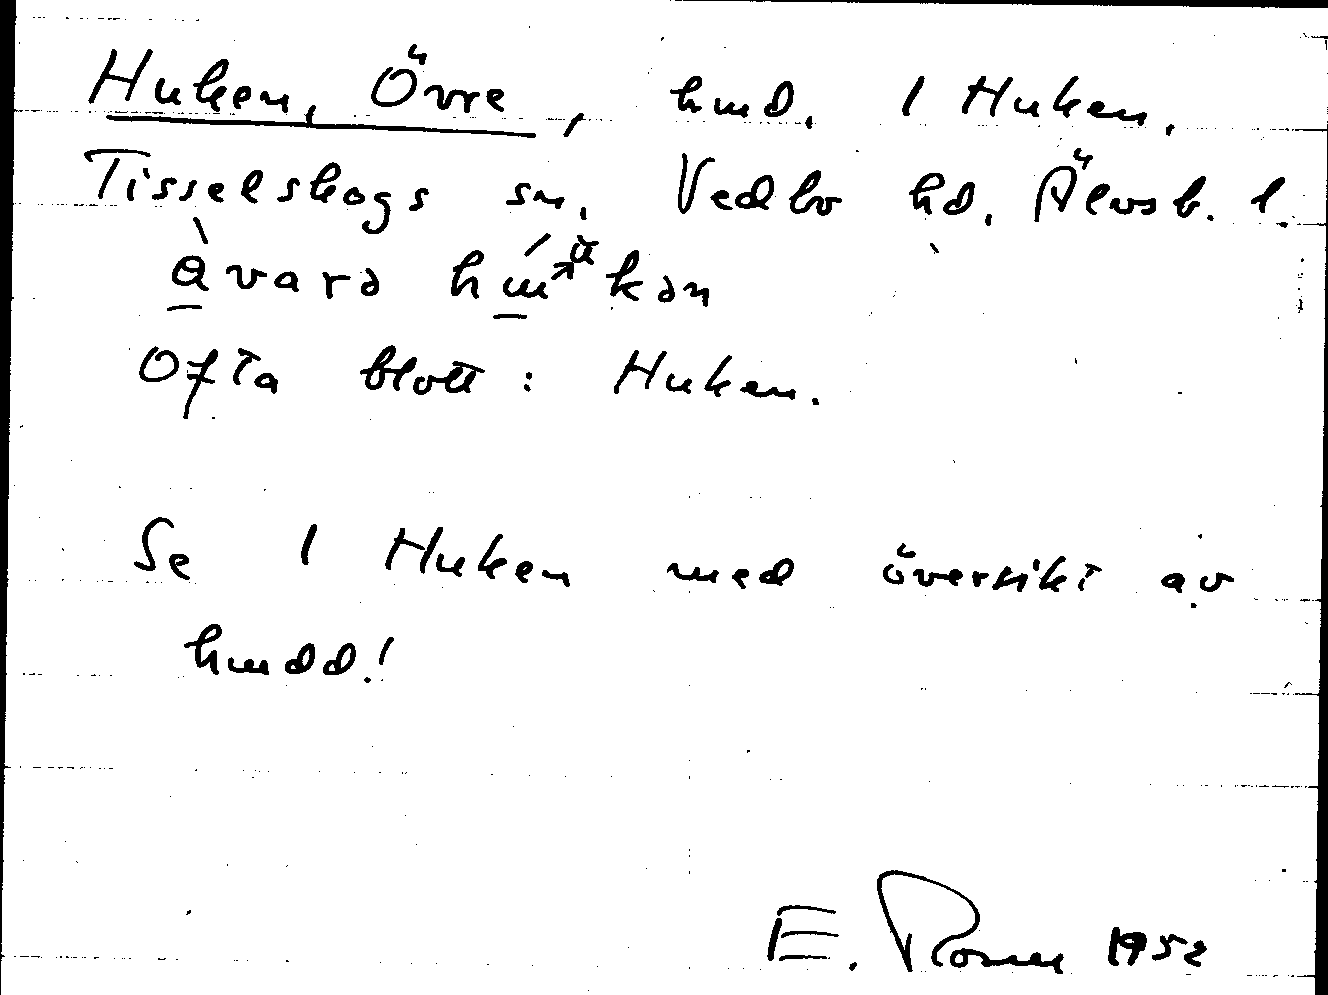 Huken, Övre, hmd. 1 Huken.
Tisselskogs sn. Vedbo hd. Älvsb. l.
àvarə kən
Ofta blott: Huken.
Se 1 Huken med översikt av
hmdd!
E. 1952